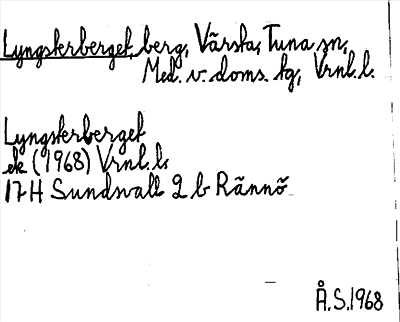 Lyngsterberget, berg, Värsta, Tuna sn,
Med. v. doms. tg, Vrnl.l.
Lyngsterberget
ek (1968) Vrnl.l.
17H Sundsvall 2 b Rännö
Å.S. 1968